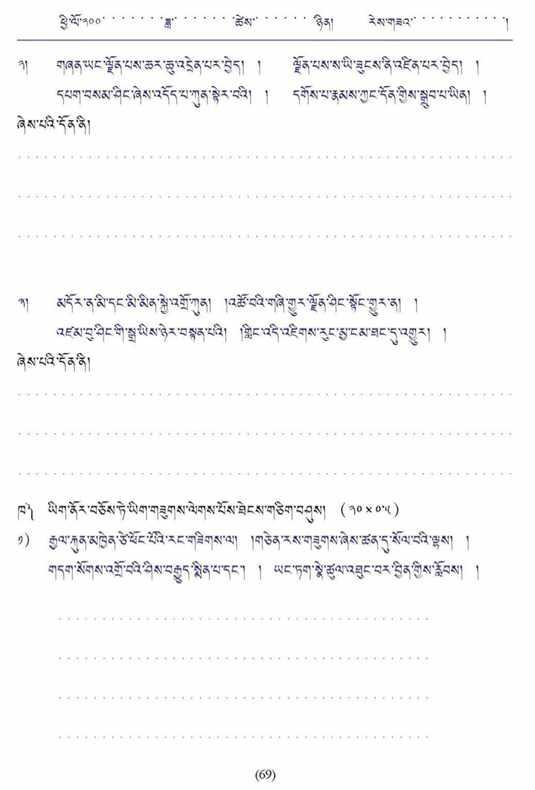 ཕྱི་ལོ་༢༠༠ ཟླ་ ཚེས་ ཉིན། རེས་གཟའ་ །
༢། གཞན་ཡང་ལྗོན་པས་ཆར་ཆུ་འདྲེན་པར་བྱེད། ། ལྗོན་པས་ས་ཡི་ཟུངས་ནི་འཛིན་པར་བྱེད། །
དཔག་བསམ་ཤིང་ཞེས་འདོད་པ་ཀུན་སྟེར་བའི། ། དགོས་པ་རྣམས་ཀྱང་དོན་གྱིས་སྒྲུབ་པ་ཡིན། །
ཞེས་པའི་དོན་ནི།
༣། མདོར་ན་མི་དང་མི་མིན་སྐྱེ་འགྲོ་ཀུན། །འཚོ་བའི་གཞི་གྱུར་ལྗོན་ཤིང་སྟོང་གྱུར་ན། །
འཛམ་བུ་ཤིང་གི་སྒྲ་ཡིས་ཉེར་བསྟན་པའི། །གླིང་འདི་འཇིགས་རུང་མྱ་ངམ་ཐང་དུ་འགྱུར། །
ཞེས་པའི་དོན་ནི།
ཁ༽ ཡིག་ནོར་བཅོས་ཏེ་ཡིག་གཟུགས་ལེགས་པོས་ཐེངས་གཅིག་བཤུས། (༢༠ x ༠.༥)
༡) རྒྱལ་རྐུན་མཁྱེན་ཙེ་ཕོང་པོའི་རང་གཟིགས་ལ། །གཅེན་རས་གཟུགས་ཞེས་ཚན་དུ་སོལ་བའི་ལྷས། །
གདག་སོགས་འགྲོ་བའི་ཤིས་བརྒྱུད་སྨིན་པ་དང་། ། ཡང་ཏག་སྣེ་ཚུལ་འཐུང་བར་བྱིན་གྱིས་རློབས། །
(69)